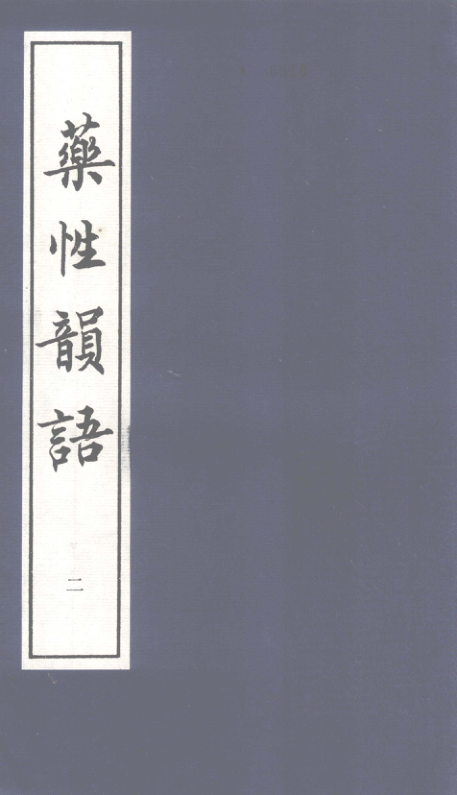 藥性韻語
二